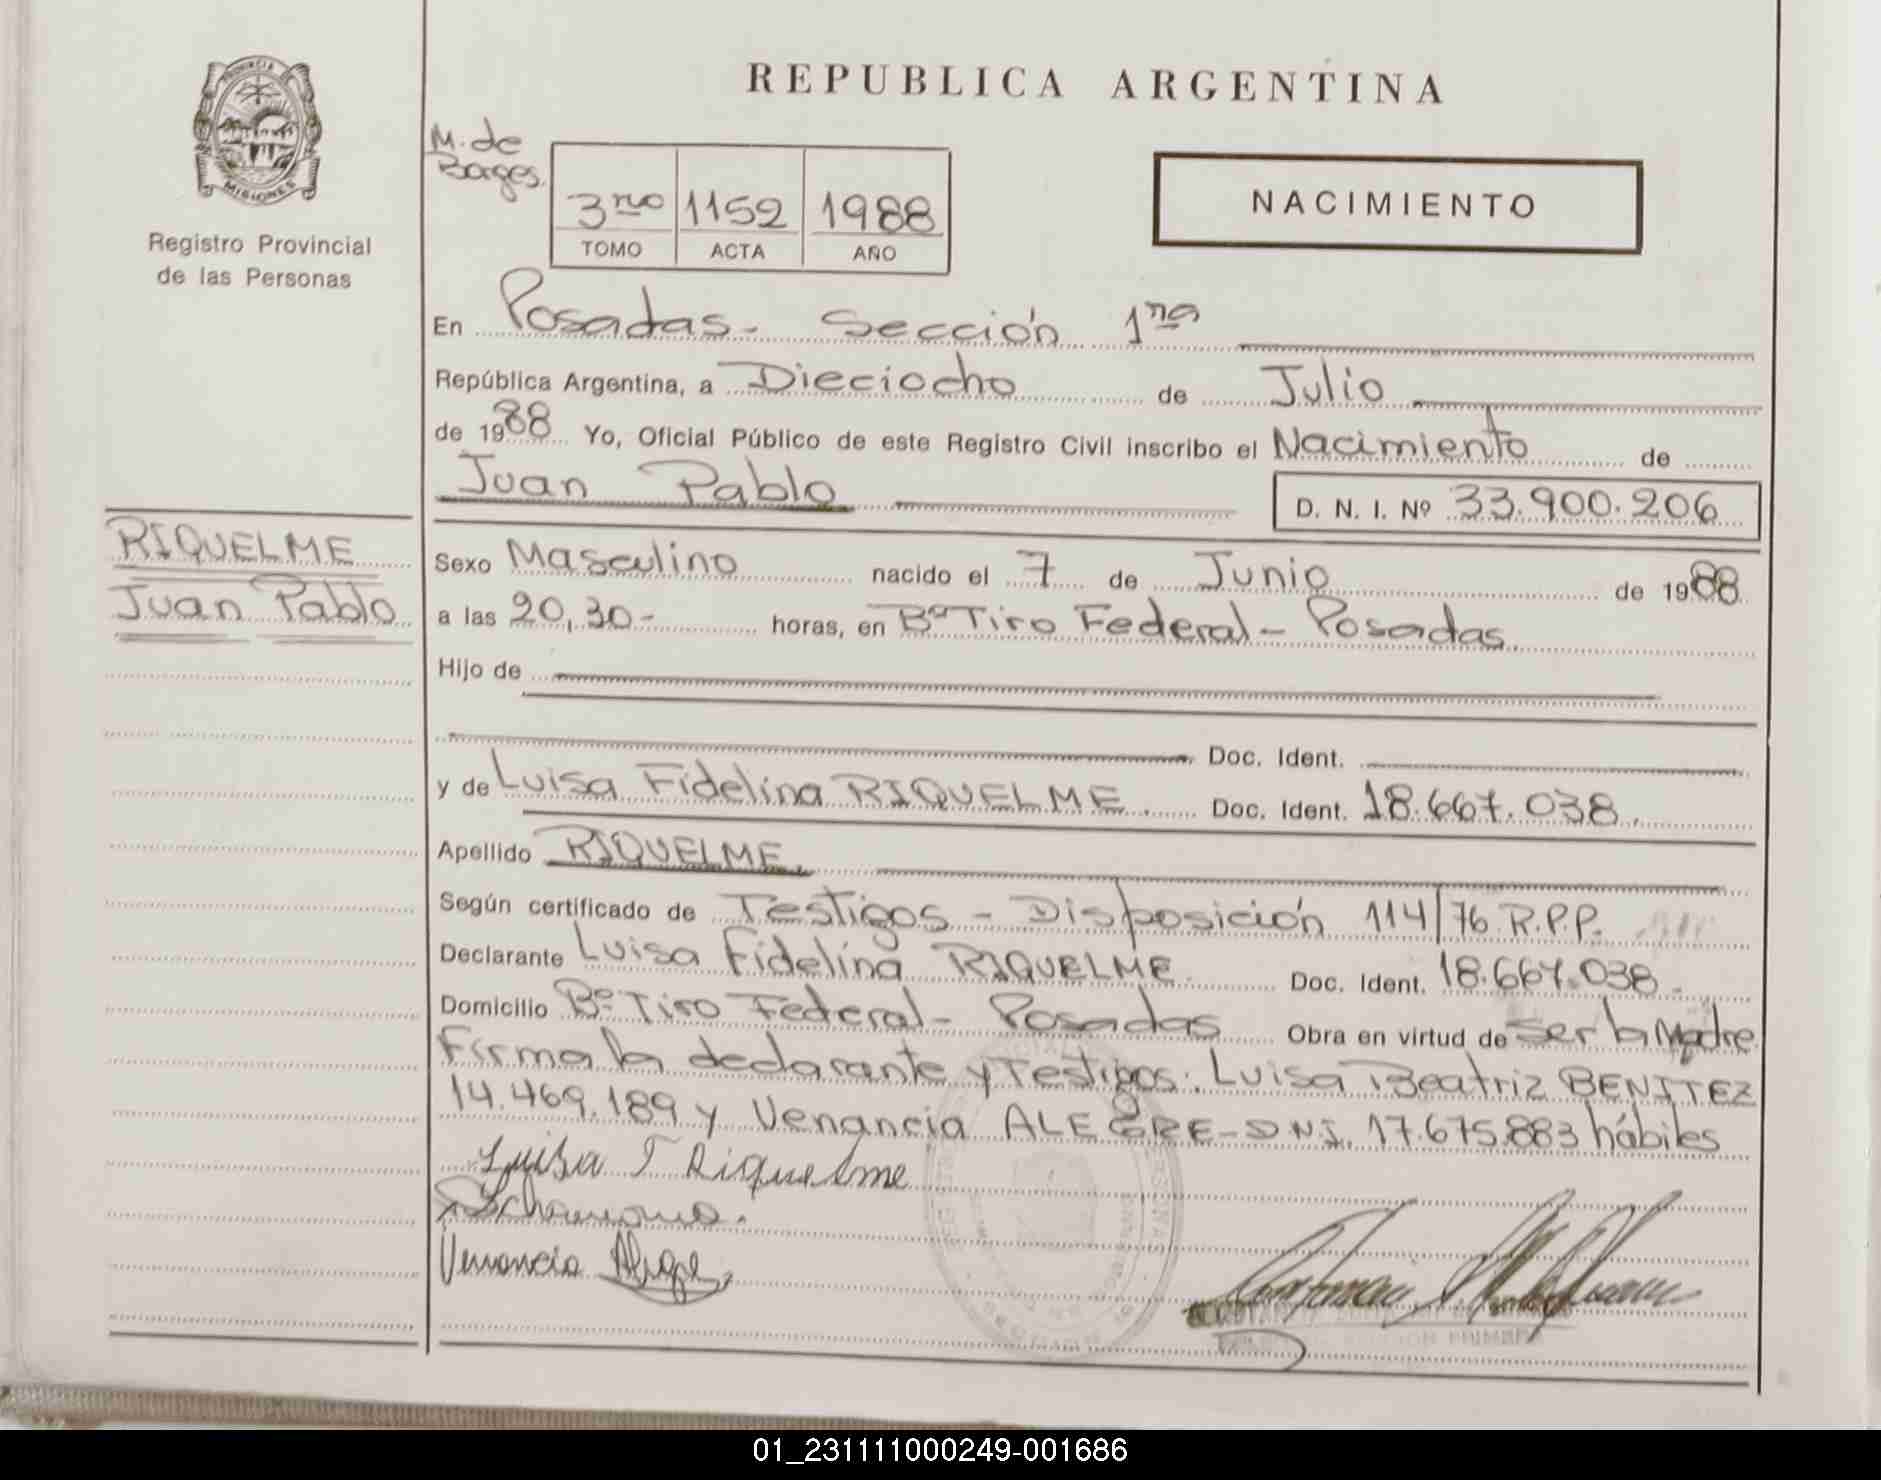 PROVINCIA DE
MISIONES
Registro Provincial
de las Personas
RIQUELME
Juan Pablo
REPUBLICA ARGENTINA
M. de
Borges.
3ro 1152 1988
TOMO ACTA AÑO
NACIMIENTO
En Posadas - Sección 1ra
República Argentina, a Dieciocho de Julio
de 1988 Yo, Oficial Público de este Registro Civil inscribo el Nacimiento de
Juan Pablo D. N. I. Nº 33.900.206
Sexo Masculino nacido el 7 de Junio de 1988
a las 20,30- horas, en Bº Tiro Federal - Posadas.
Hijo de
Doc. Ident.
y de Luisa Fidelina RIQUELME. Doc. Ident. 18.667.038.
Apellido RIQUELME.
Según certificado de Testigos - Disposición 114/76 R.P.P.
Declarante Luisa Fidelina RIQUELME. Doc. Ident. 18.667.038.
Domicilio Bº Tiro Federal - Posadas Obra en virtud de ser la Madre
Firma la declarante y Testigos: Luisa Beatriz BENITEZ
14.469.189 y Venancia ALEGRE - DNI. 17.675.883 hábiles
Luisa F Riquelme
Venancia Alegre
01_231111000249-001686